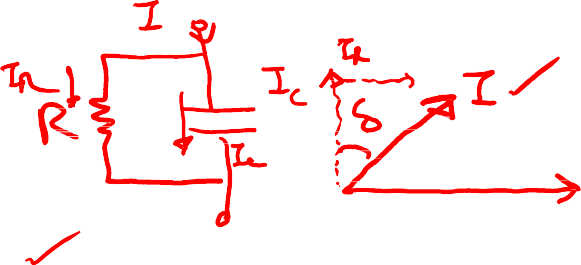 I
I_R
R
I_C
I_c
I_R
δ
I